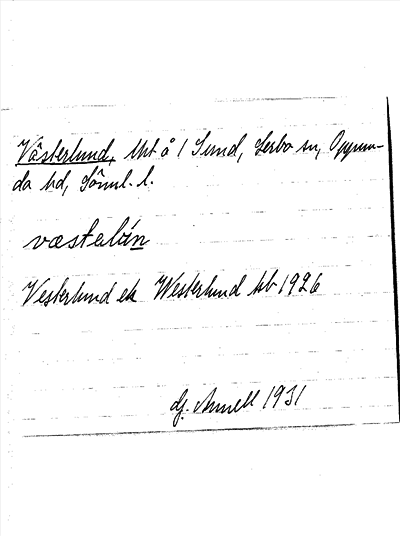 Västerlund, lht å 1 Sund, Lerbo sn, Oppun-
da hd, Söml. l.
væstalún
Vesterlund ek Westerlund hb 1926
Gj. Annell 1931